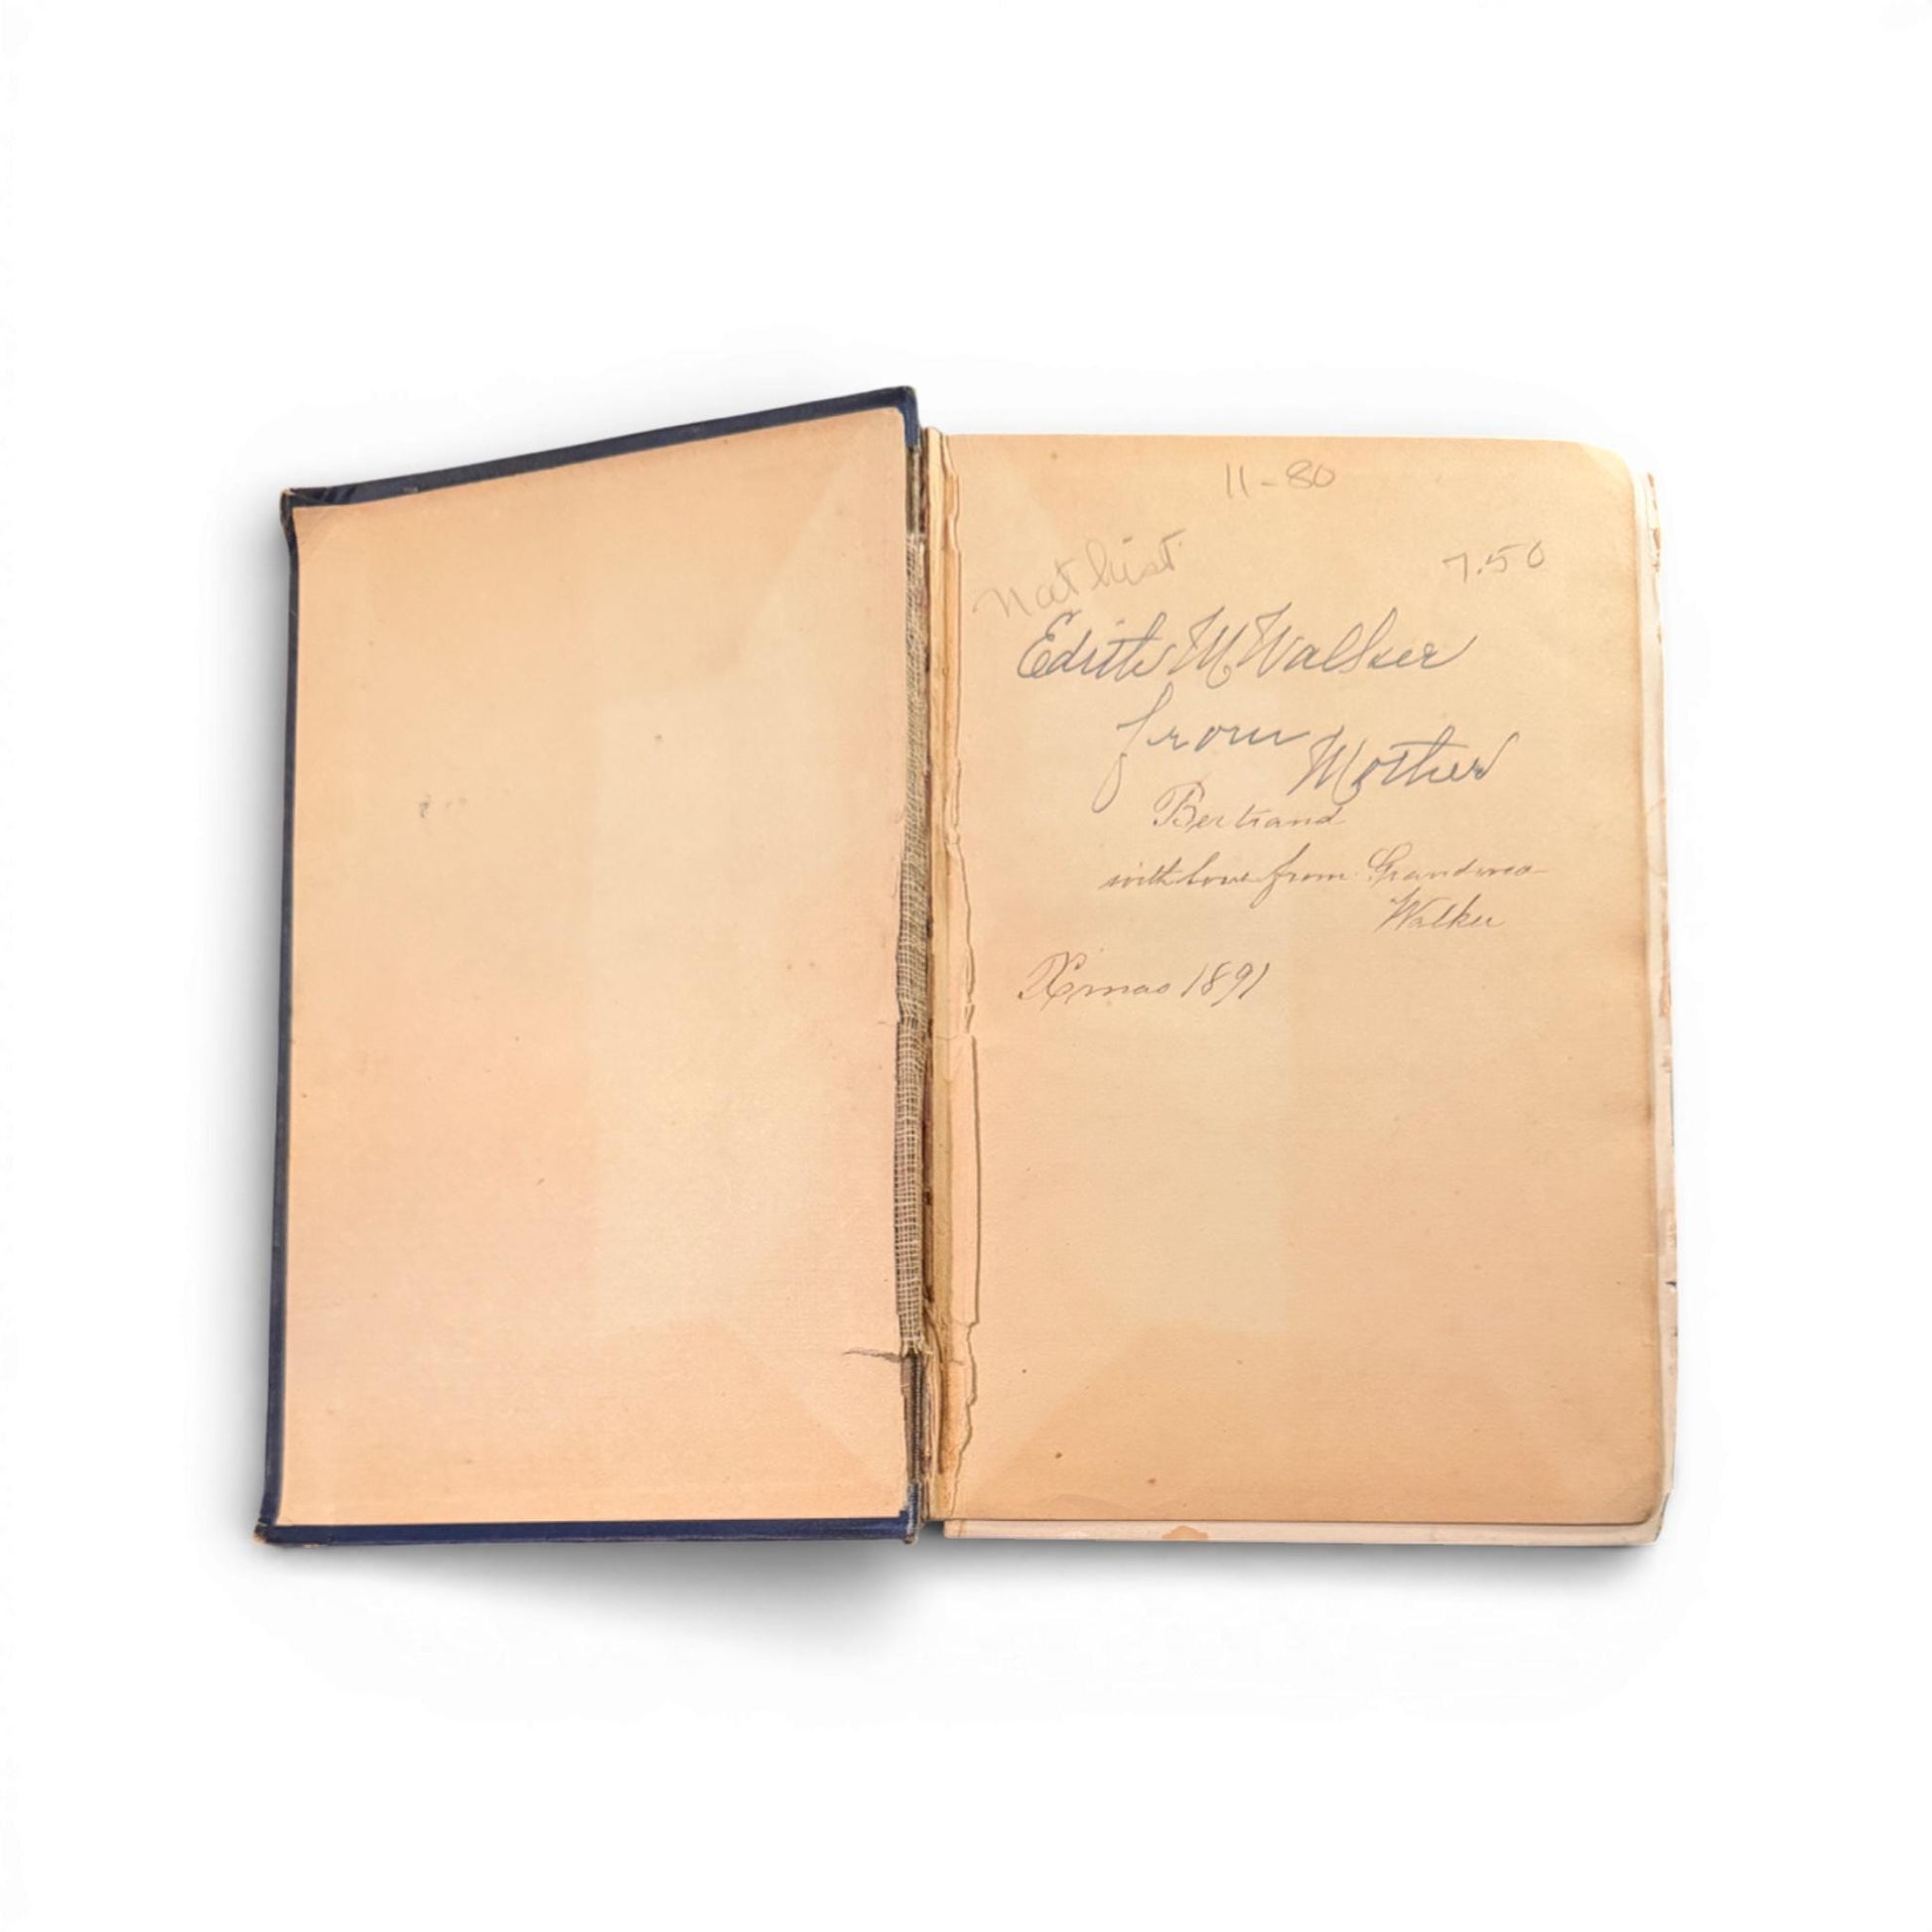 11-80
Nat hist.
7.50
Edith M Walker
from Mother
Bertrand
with love from Grandma
Walker
Xmas 1891